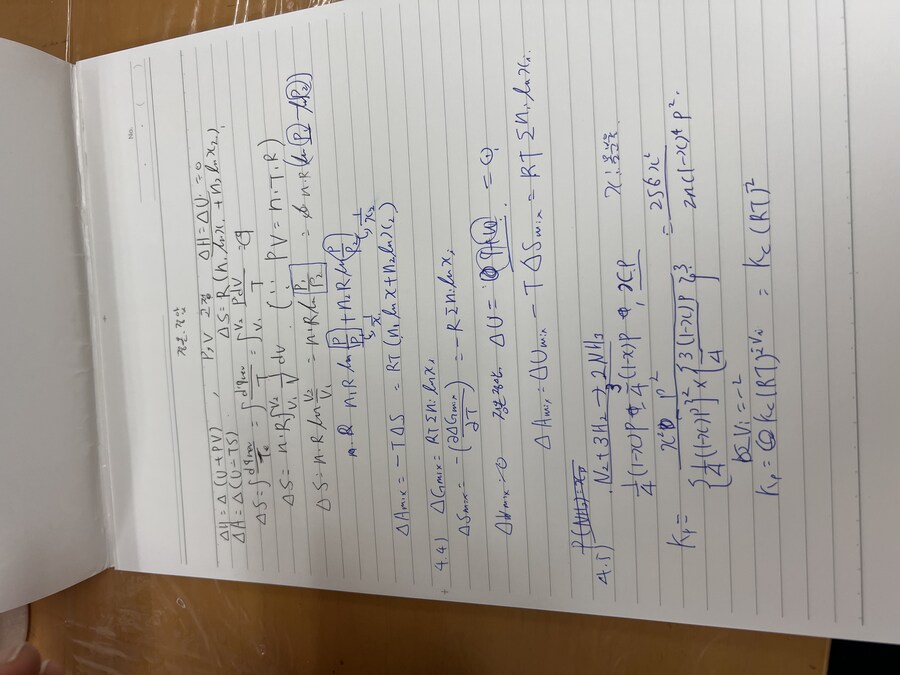 No.
정온.정압
ΔH=Δ(U+PV) , P,V 고정 ΔH=ΔU=0
ΔA=Δ(U-TS) ΔS=R(n₁lnx₁+n₂lnx₂)
ΔS=∫dqrev/T = ∫dqrev/T = ∫V₁V₂ PdV/T =
ΔS= n·R∫V₁V₂ 1/V dv (∵ PV=n.T.R)
ΔS=n.R ln V₂/V₁ = n.R ln P₁/P₂ = n.R(lnP₁-lnP₂)
n₁R ln P/P₁ + n₂R ln P/P₂
1/x₁ 1/x₂
ΔAmix=-TΔS = RT(n₁lnx+n₂lnx₂)
4.4) ΔGmix=RTΣnᵢlnxᵢ
ΔSmix= -(∂ΔGmix/∂T) =-RΣnᵢlnxᵢ
ΔHmix=0 정온정압 ΔU= q+w =0
ΔAmix=ΔUmix-TΔSmix=RTΣnᵢlnxᵢ.
P(NH₃)=xp
4.5) N₂+3H₂→2NH₃
1/4(1-x)P 3/4(1-x)P , x.P x:몰분율
Kp= x² P²/{1/4(1-x)P}²×{3(1-x)P/4}³ = 256x²/27(1-x)⁴P².
ΣVi=-2
Kp= Kc(RT)^ΣVi = Kc(RT)²